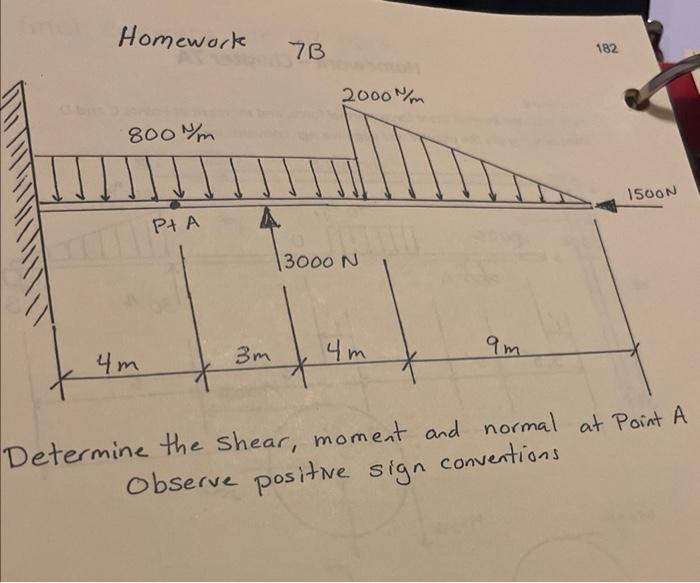 Homework 7B
182
2000 N/m
800 N/m
1500N
Pt A
3000 N
4m 3m 4m 9m
Determine the shear, moment and normal at Point A
Observe positive sign conventions